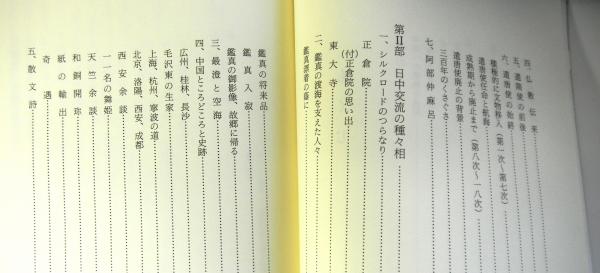 四、仏教伝来
五、遣隋使の前後
六、遣唐使の始終
積極的に文物移入（第一次～第七次）
遣唐使任命と航海
成熟期から廃止まで（第八次～一八次）
遣唐使廃止の背景
三百年のくさぐさ
七、阿部仲麻呂
第Ⅱ部 日中交流の種々相
一、シルクロードのつらなり
正倉院
(付)正倉院の思い出
東大寺
二、鑑真の渡海を支えた人々
鑑真漂着の島に
鑑真の将来品
鑑真入寂
鑑真の御影像、故郷に帰る
三、最澄と空海
四、中国ところどころと史跡
広州、桂林、長沙
毛沢東の生家
上海、杭州、寧波の道
北京、洛陽、西安、成都
西安余談
一一名の舞姫
天竺余談
和銅開珎
紙の輸出
奇遇
五、散文詩